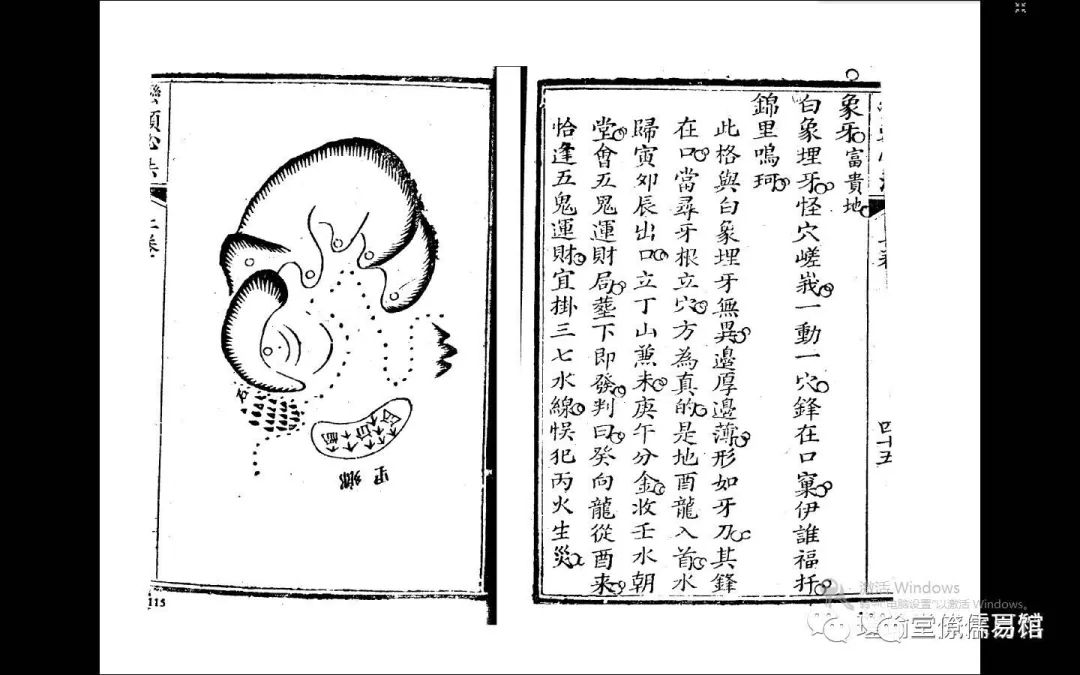 象牙富貴地
白象埋牙怪穴嵯峩一動一穴鋒在口窠伊誰福扦
錦里鳴珂
此格與白象埋牙無異邊厚邊薄形如牙乃其鋒
在口當尋牙根立穴方為真的是地酉龍入首水
歸寅夘辰出口立丁山兼未庚午分金收壬水朝
堂會五鬼運財局塟下即發判曰癸向龍從酉来
恰逢五鬼運財宜掛三七水線悮犯丙火生災
四十五
巒頭心法
石
鄉里
115
激活 Windows
转到"电脑设置"以激活 Windows。
儒易馆